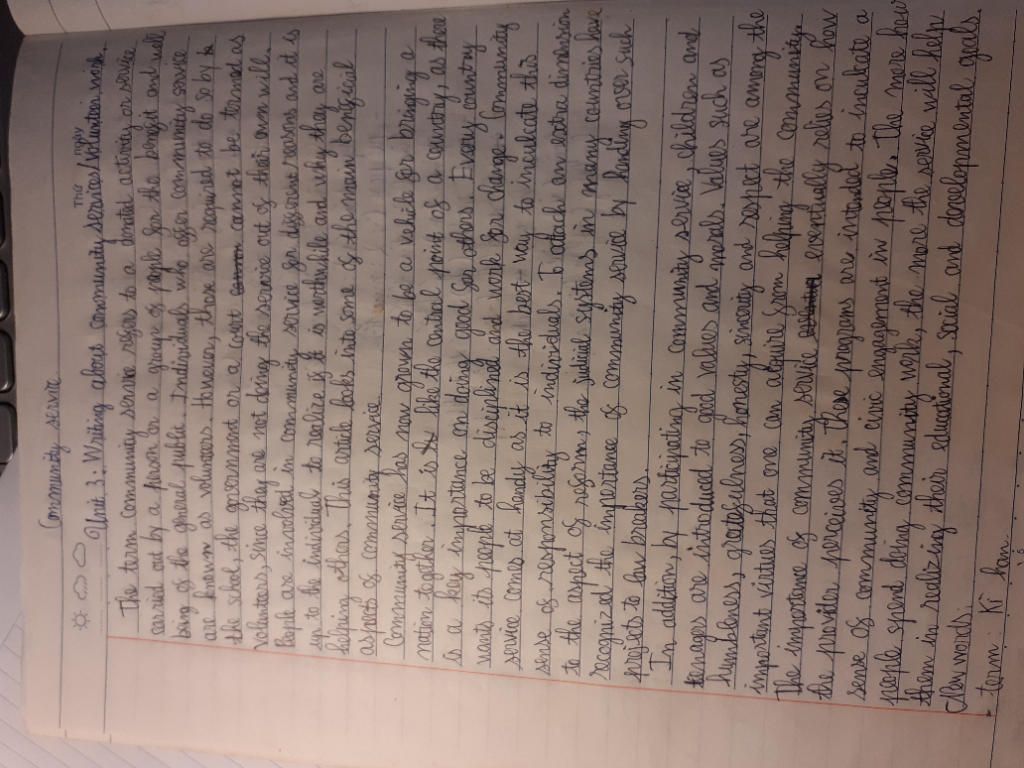 Community service
Tha
copy
Unit 3: Writing about community services/volunteer work.
The term community service refers to a donated activity or service
carried out by a person or a group of people for the benefit and well
being of the general public. Individuals who offer community service
are known as volunteers. However, those are required to do so by
the school, the government or a court cannot be termed as
volunteers, since they are not doing the service out of their own will.
People are involved in community service for different reasons and it is
up to the individual to realize if it is worthwhile and why they are
helping others. This article looks into some of the main beneficial
aspects of community service.
Community service has now grown to be a vehicle for bringing a
nation together. It is like the central point of a country, as there
is a key importance on doing good for others. Every country
wants its people to be disciplined and work for change. Community
service comes at handy as it is the best way to inculcate this
sense of responsibility to individuals. To attach an extra dimension
to the aspect of reform, the judicial systems in many countries have
recognized the importance of community service by handing over such
projects to law breakers.
In addition, by participating in community service, children and
teenages are introduced to good values and morals. Values such as
humbleness, gratefulness, honesty, sincerity and respect are among the
important virtues that one can acquire from helping the community
The importance of community service eventually relies on how
the provider perceives it. These programs are intended to inculcate a
sense of community and civic engagement in peoples. The more hours
people spend doing community work, the more the service will help
them in realizing their educational, social and developmental goals.
Key words:
term: Kì hạn